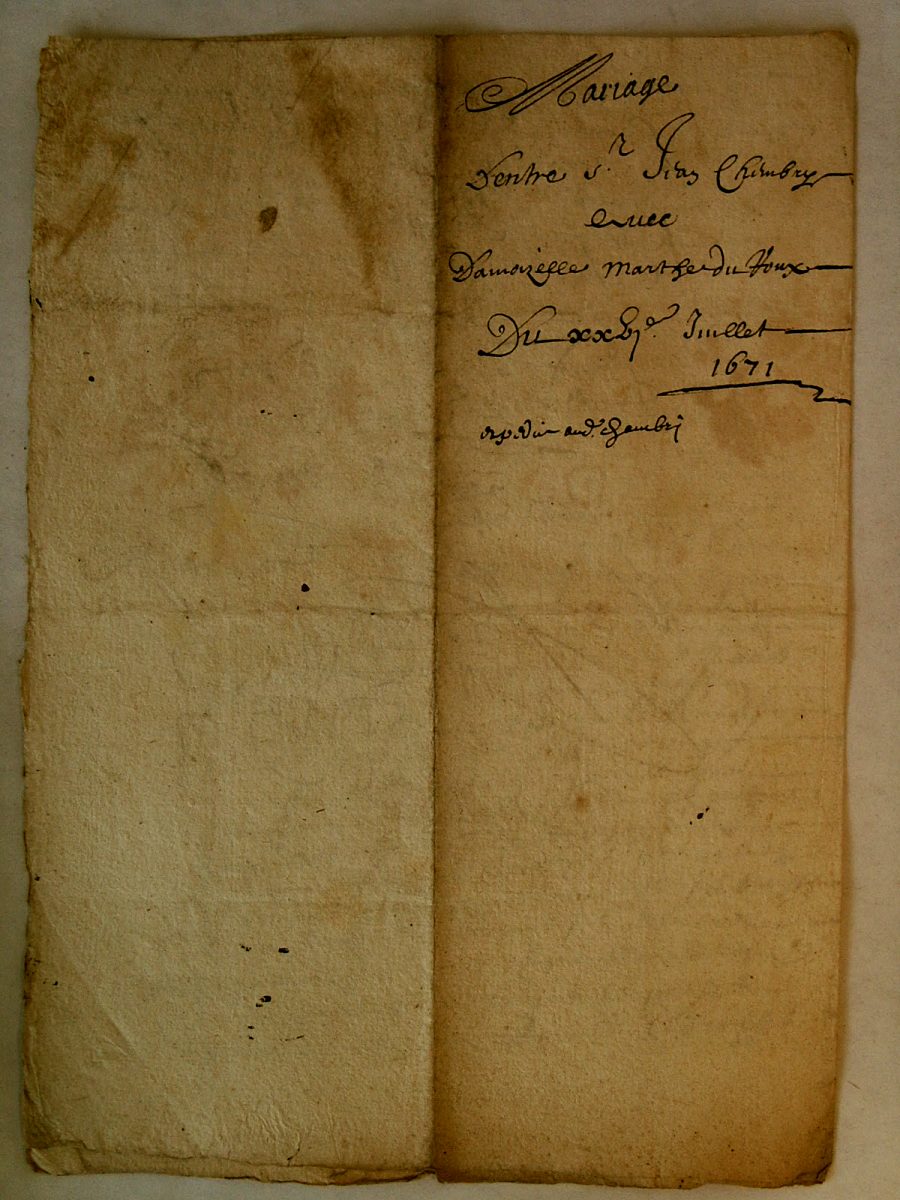 Mariage
Dentre s.r Jean Chambry
Avec
Damoizelle marthe du Roux
Du xxvje. Juillet
1671
expedié aud. chambri